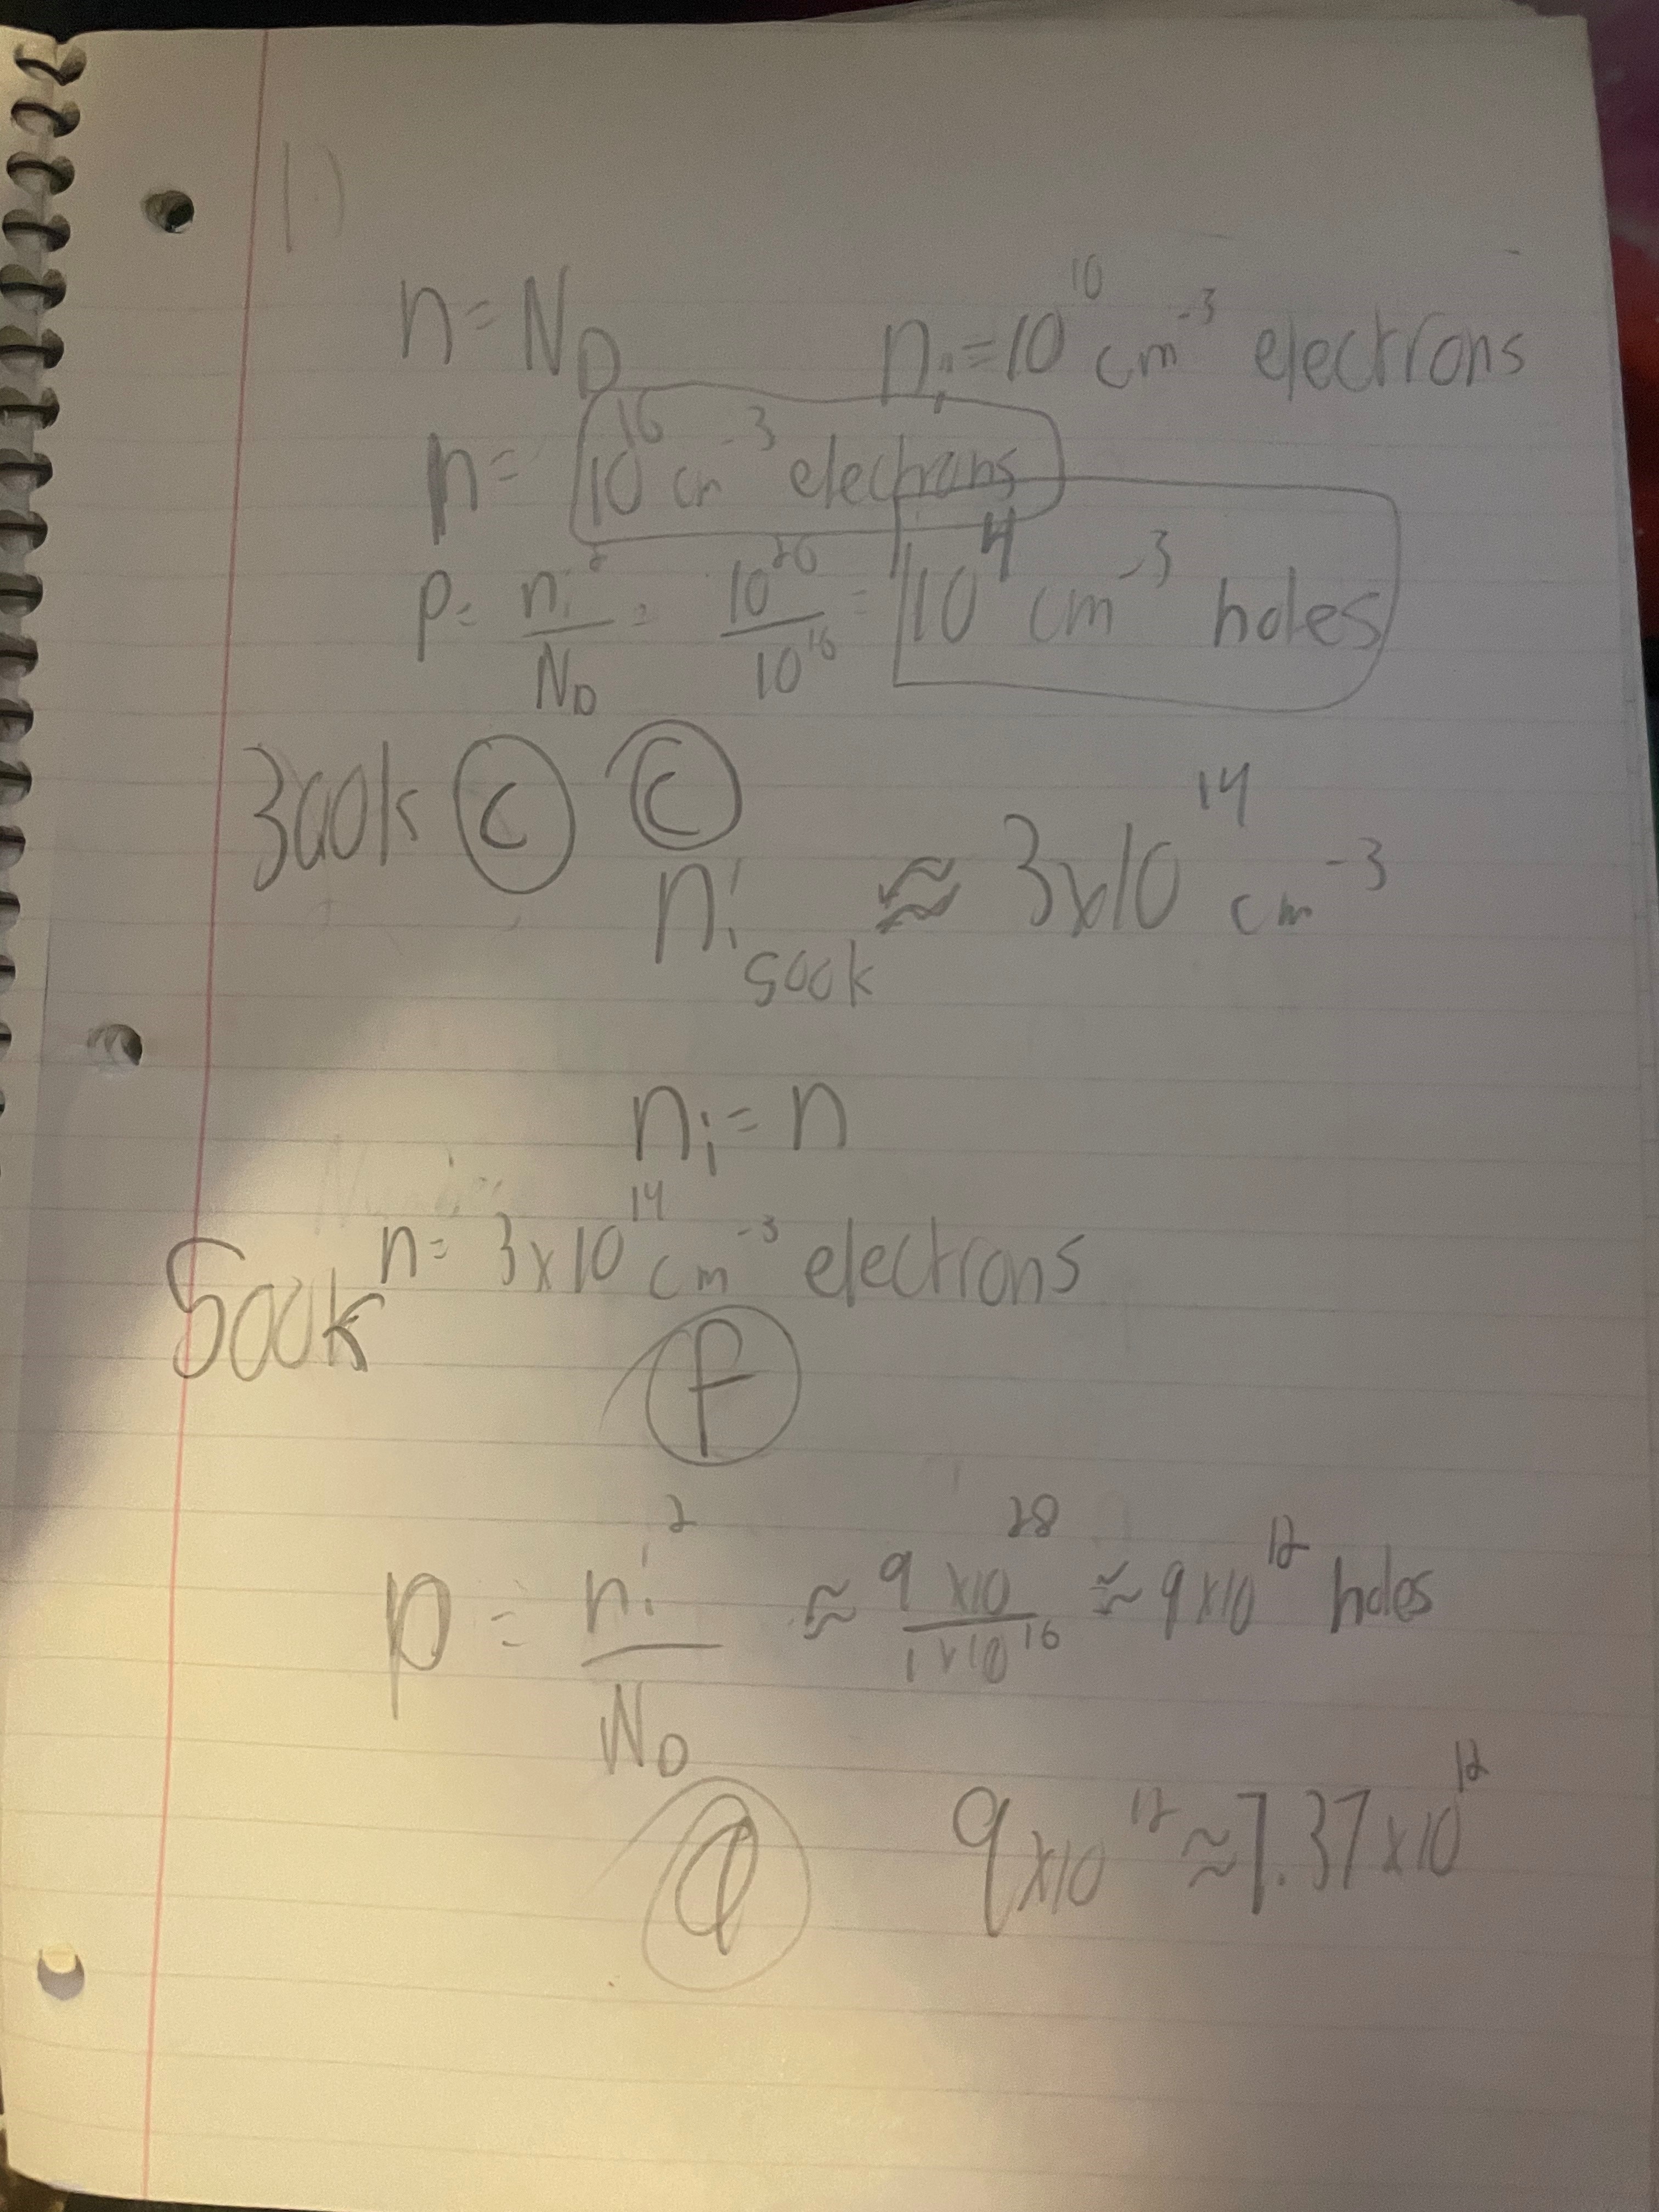 1.)
n = N_D n_i = 10^10 cm^-3 electrons
n = 10^16 cm^-3 electrons
p = n_i^2 / N_D = 10^20 / 10^16 = 10^4 cm^-3 holes
300k C C
n_i 500k ≈ 3x10^14 cm^-3
n_i = n
n = 3x10^14 cm^-3 electrons
500k
P
p = n_i^2 / N_D ≈ 9x10^28 / 1x10^16 ≈ 9x10^12 holes
9x10^12 ≈ 7.37x10^12